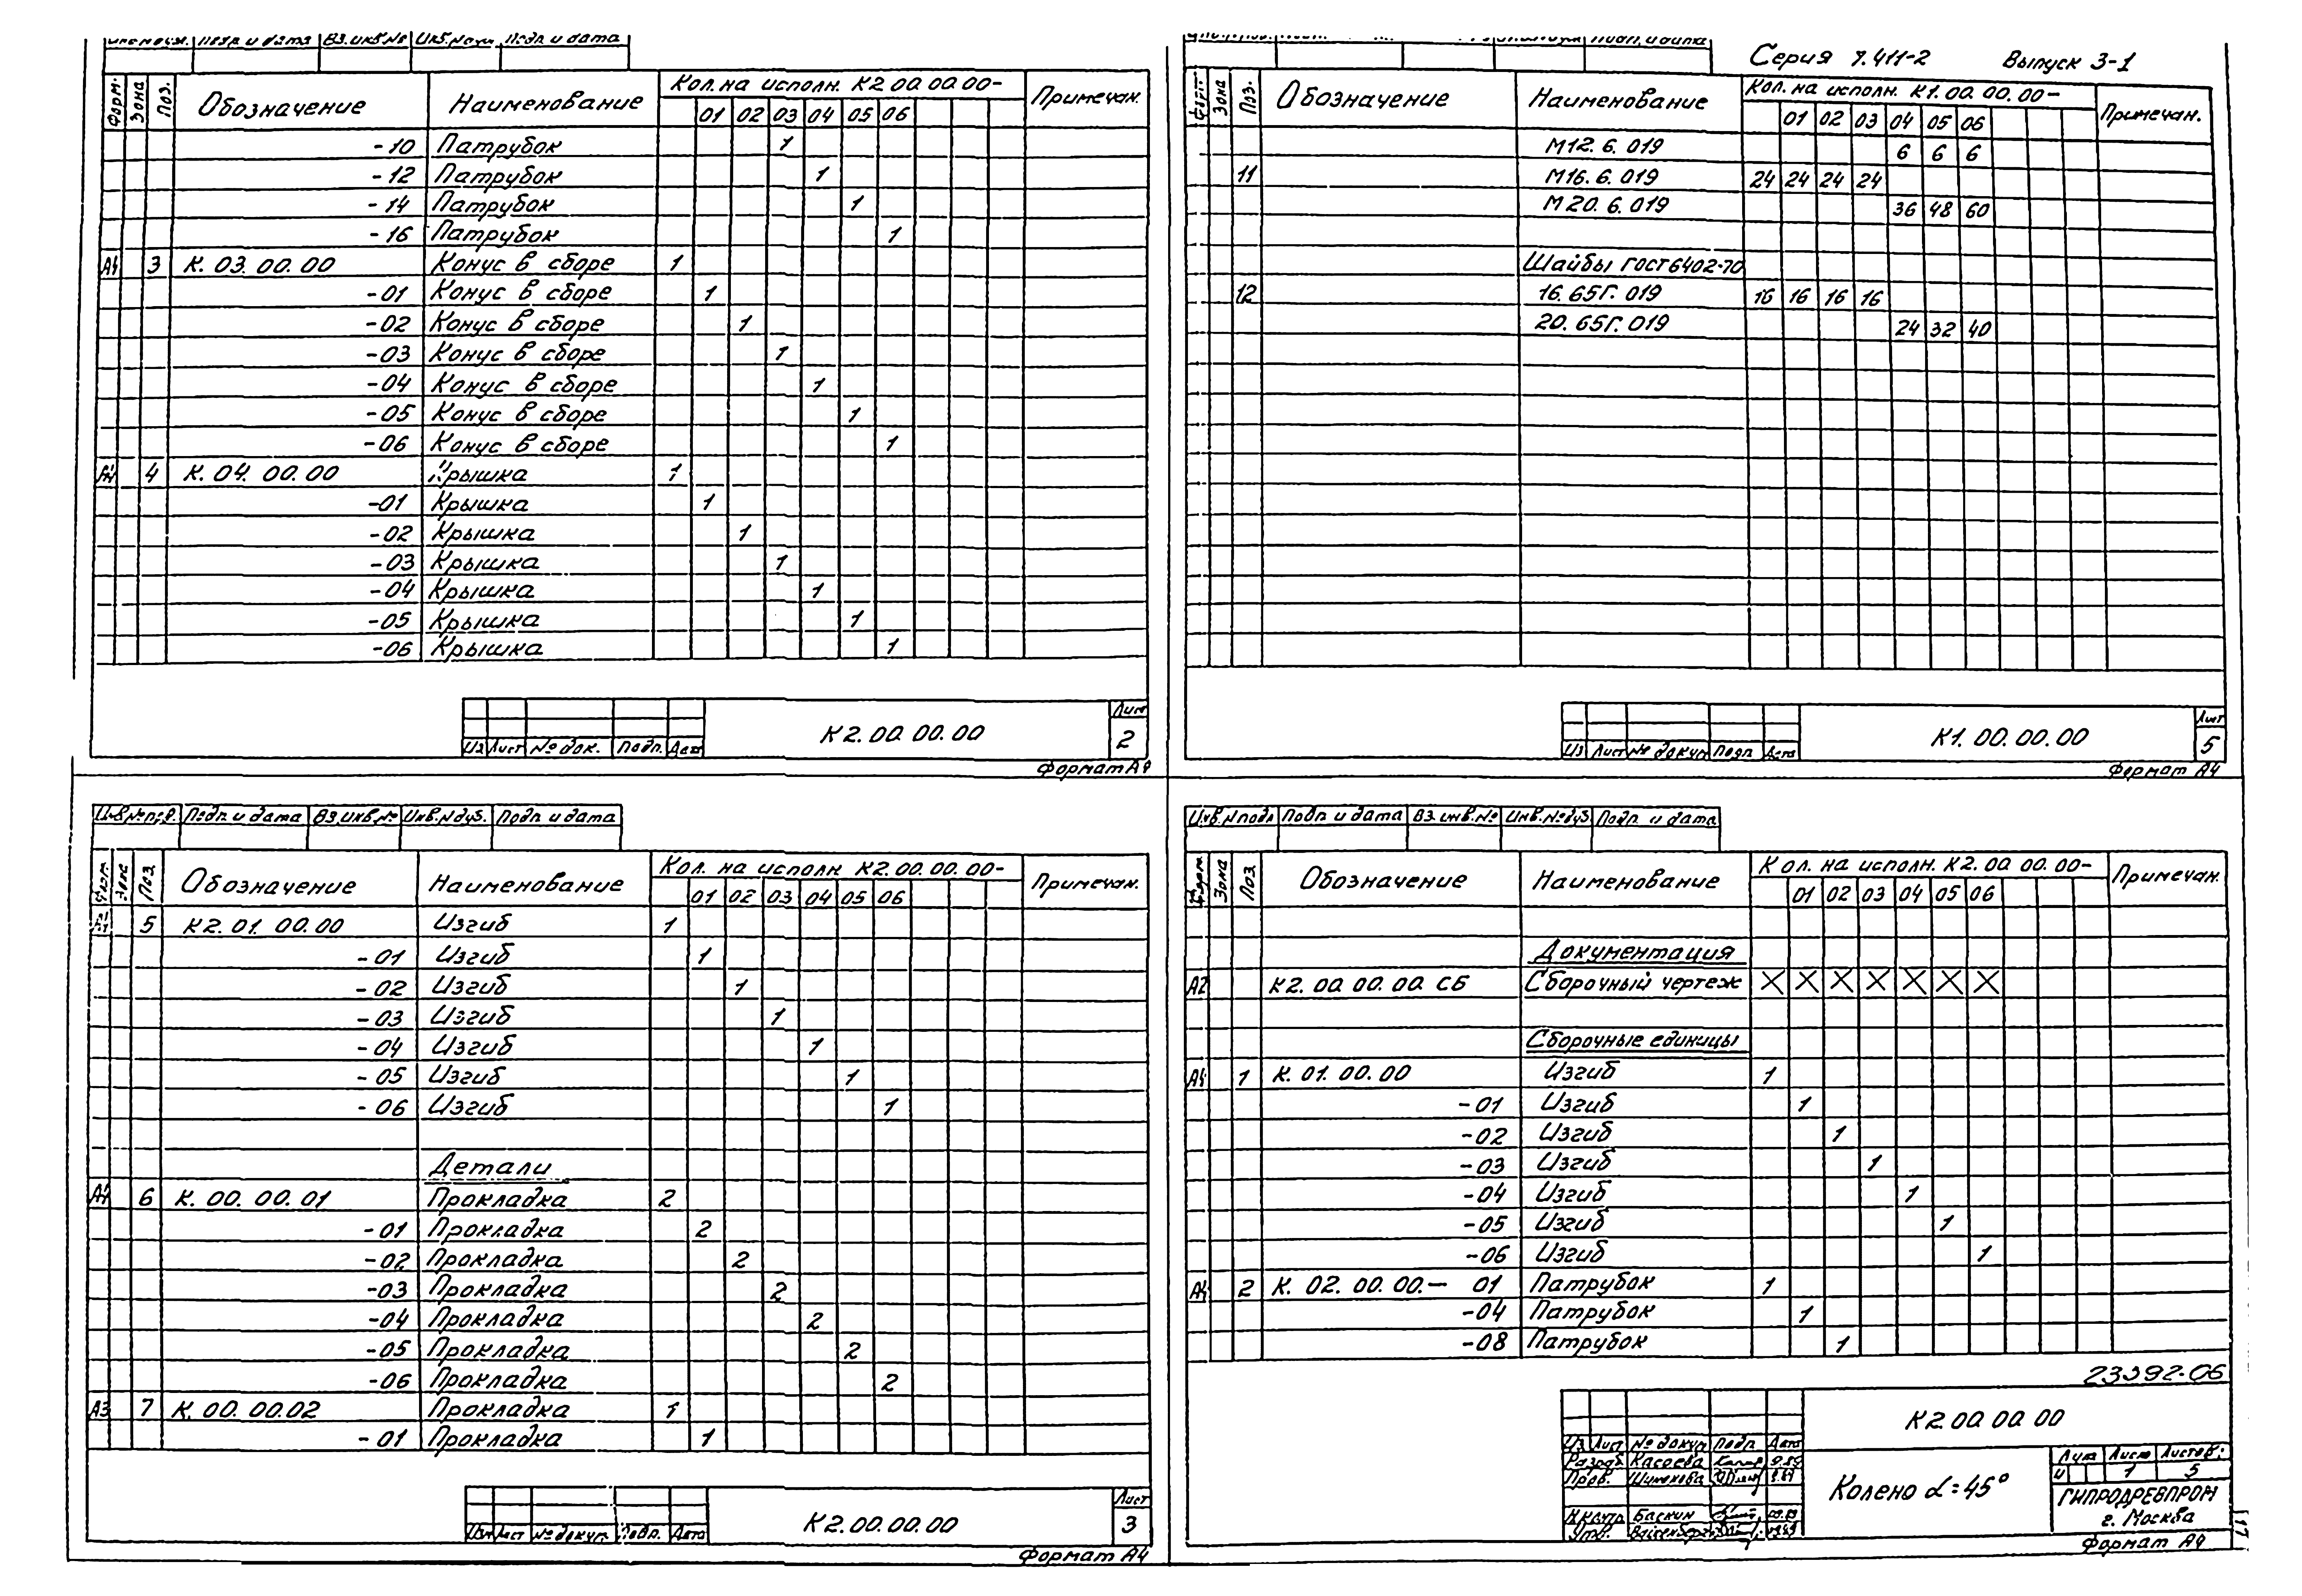 Подп и дата Вз.инв.№ Подп и дата
Форм. Зона Поз. Обозначение Наименование Кол. на исполн. К2 00 00 00- Примечан.
01 02 03 04 05 06
-10 Патрубок 1
-12 Патрубок 1
-14 Патрубок 1
-16 Патрубок 1
А4 3 К. 03. 00. 00 Конус в сборе 1
-01 Конус в сборе 1
-02 Конус в сборе 1
-03 Конус в сборе 1
-04 Конус в сборе 1
-05 Конус в сборе 1
-06 Конус в сборе 1
А4 4 К. 04. 00. 00 Крышка 1
-01 Крышка 1
-02 Крышка 1
-03 Крышка 1
-04 Крышка 1
-05 Крышка 1
-06 Крышка 1
Из Лист № док. Подп. Дат К2. 00. 00. 00 Лист 2
Формат А4
Серия 7.411-2 Выпуск 3-1
Зона Поз. Обозначение Наименование Кол. на исполн. К1. 00. 00. 00- Примечан.
01 02 03 04 05 06
М12. 6. 019 6 6 6
11 М16. 6. 019 24 24 24 24
М20. 6. 019 36 48 60
Шайбы ГОСТ 6402-70
12 16. 65Г. 019 16 16 16 16
20. 65Г. 019 24 32 40
Из Лист № докум Подп Дата К1. 00. 00. 00 Лист 5
Формат А4
Подп и дата Вз.инв.№ Инв.№дуб. Подп и дата
Поз. Обозначение Наименование Кол. на исполн К2. 00. 00. 00- Примечан.
01 02 03 04 05 06
А4 5 К2. 01. 00. 00 Изгиб 1
-01 Изгиб 1
-02 Изгиб 1
-03 Изгиб 1
-04 Изгиб 1
-05 Изгиб 1
-06 Изгиб 1
Детали
А4 6 К. 00. 00. 01 Прокладка 2
-01 Прокладка 2
-02 Прокладка 2
-03 Прокладка 2
-04 Прокладка 2
-05 Прокладка 2
-06 Прокладка 2
А3 7 К. 00. 00.02 Прокладка 1
-01 Прокладка 1
Изм Лист № докум. Подп. Дата К2. 00. 00. 00 Лист 3
Формат А4
Инв.№подл Подп и дата Вз. инв.№ Инв.№дуб Подп и дата
Форм. Зона Поз. Обозначение Наименование Кол. на исполн. К2. 00 00. 00- Примечан.
01 02 03 04 05 06
Документация
А2 К2. 00. 00. 00 СБ Сборочный чертеж X X X X X X X
Сборочные единицы
А4 1 К. 01. 00. 00 Изгиб 1
-01 Изгиб 1
-02 Изгиб 1
-03 Изгиб 1
-04 Изгиб 1
-05 Изгиб 1
-06 Изгиб 1
А4 2 К. 02. 00. 00.- 01 Патрубок 1
-04 Патрубок 1
-08 Патрубок 1
23392-06
К2. 00 00 00
Из Лист № докум Подп. Дата
Разраб Касаева
Пров. Шумахова
Баскин
Утв.
Колено α=45°
Лит Лист Листов:
И 1 5
ГИПРОДРЕВПРОМ
г. Москва
Формат А4